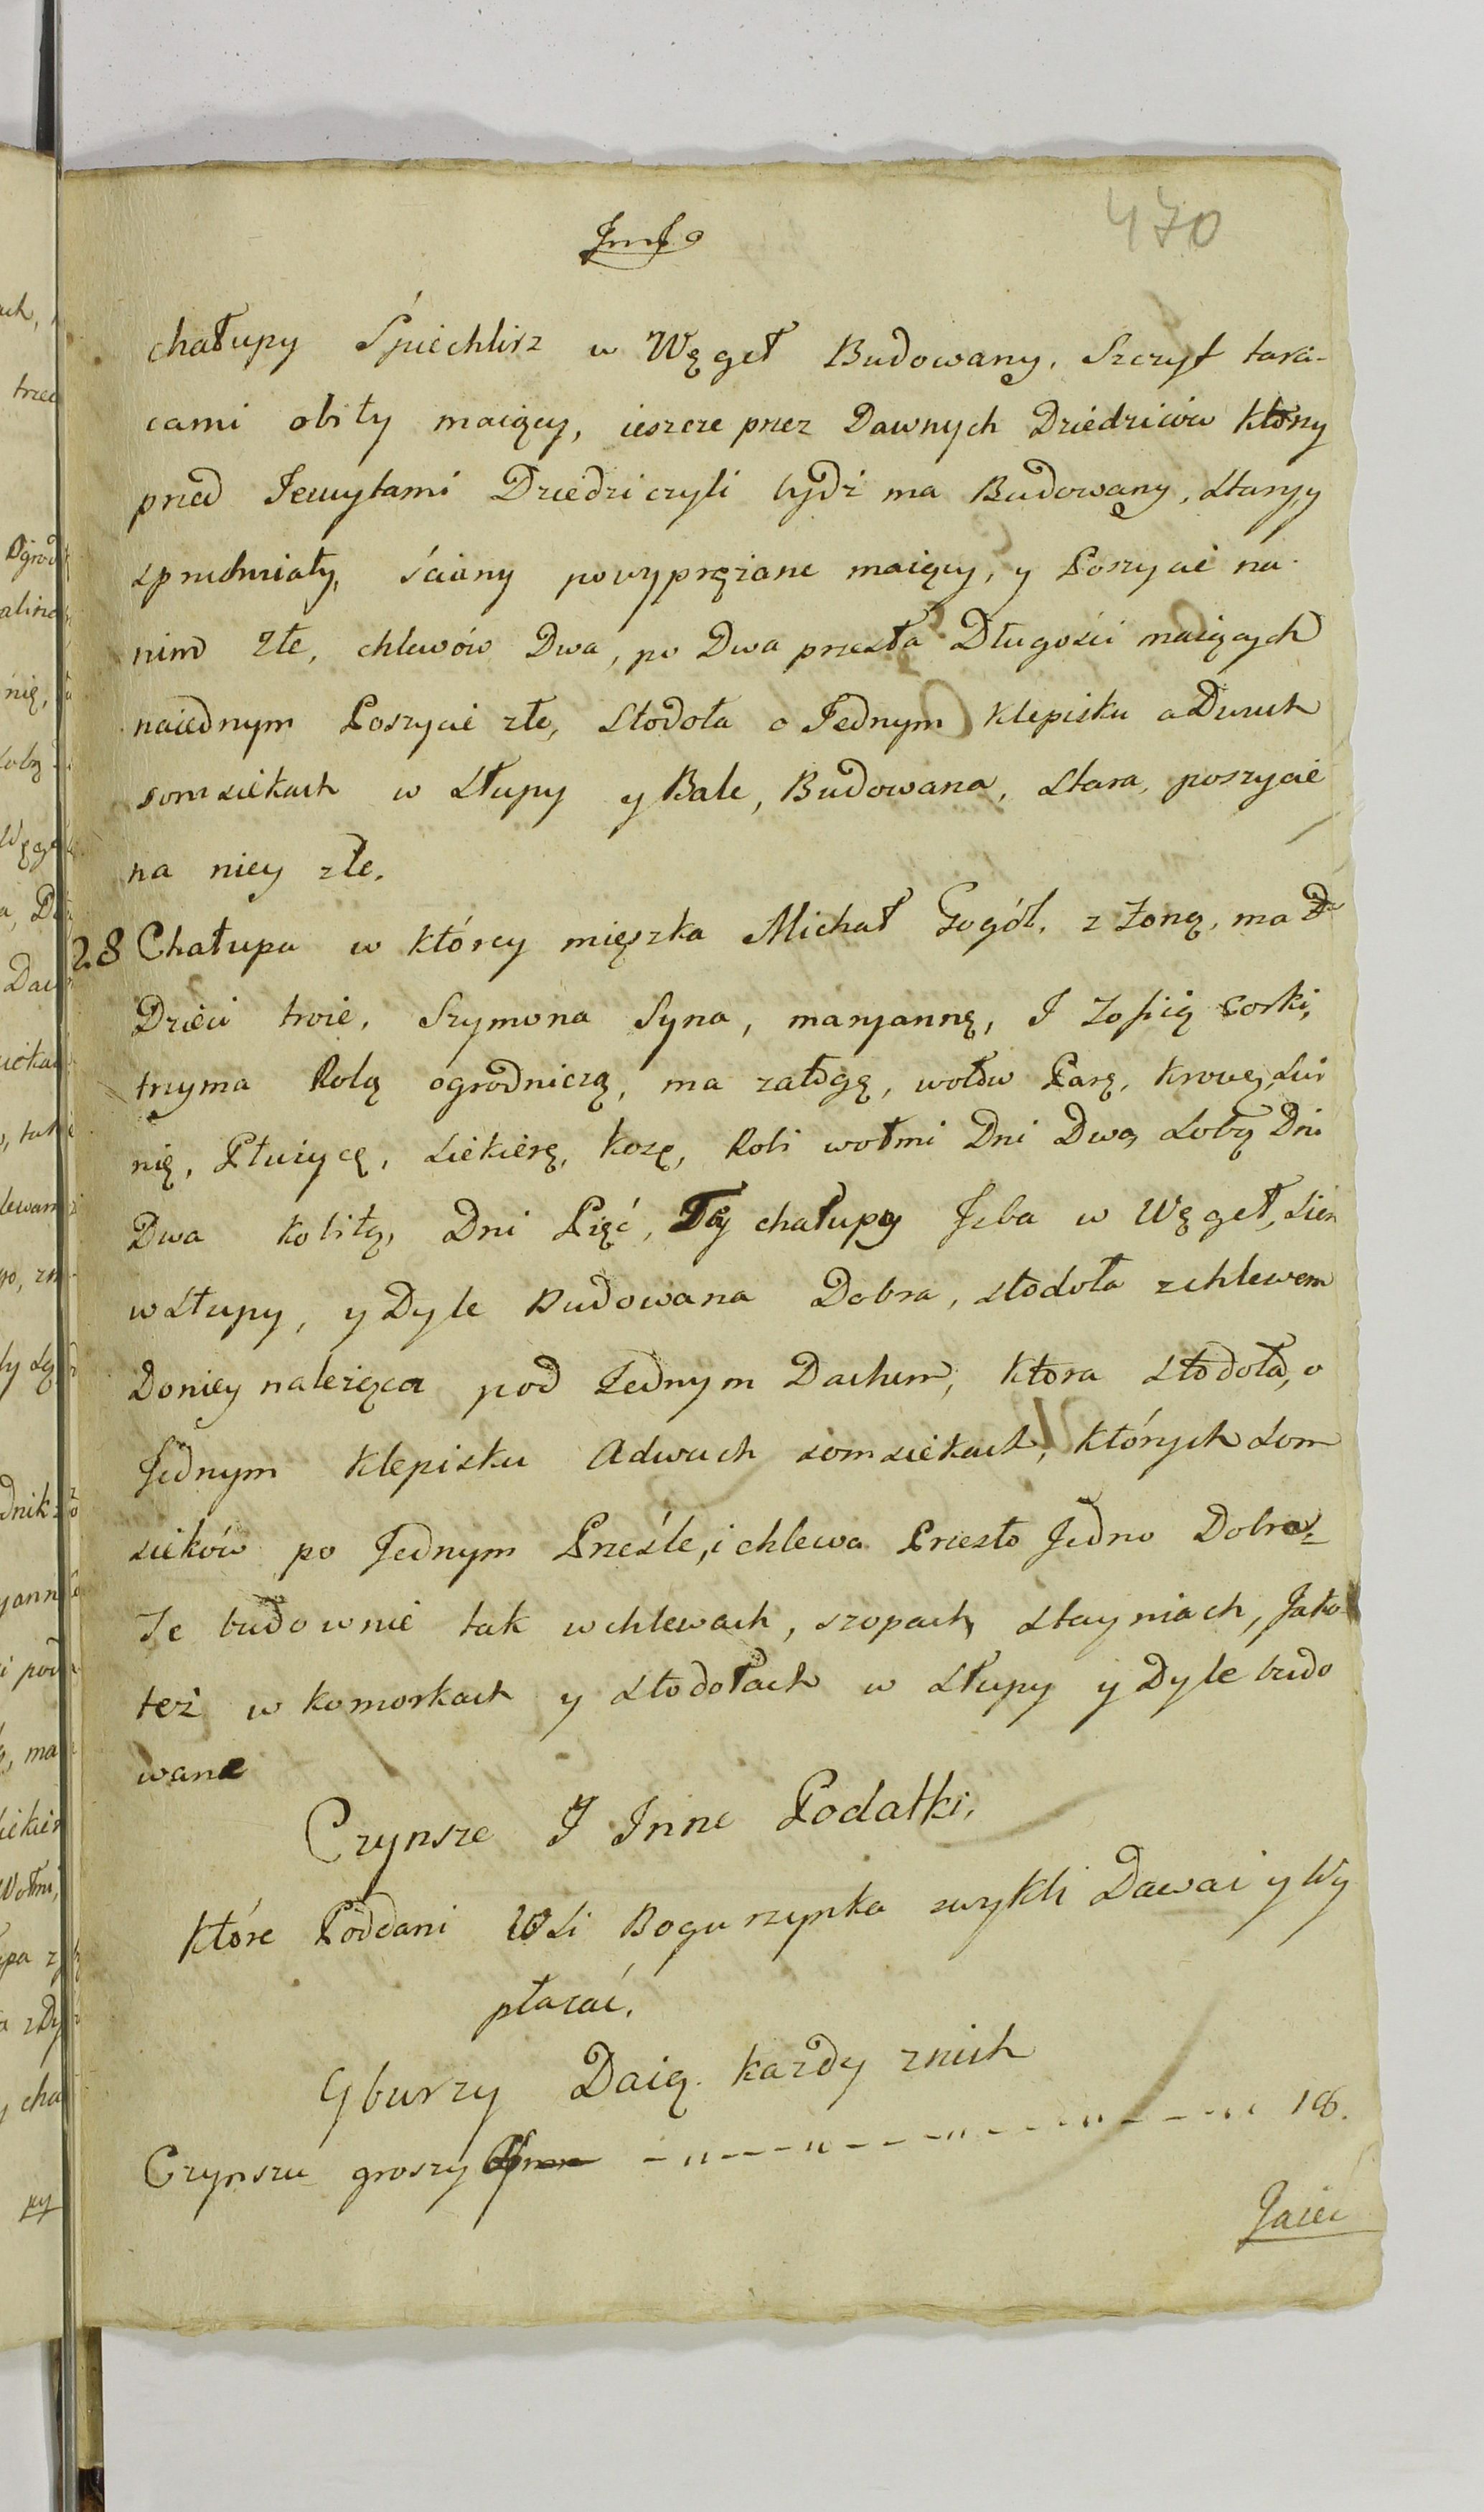 470
chałupy Śpiechlirz w Węgeł Budowany, Szczyt tarci-
cami obity maiący, ieszcze przez Dawnych Dziedziców którzy
przed Jezuytami Dziedziczyli bydź ma Budowany, stary, y
spruchniały, ściany powyprężane maiący, y Poszycie na
nim złe, chlewów Dwa, po Dwa przęsła Długości maiących
naiednym Poszycie złe, stodoła o Jednym klepisku a Dwuch
somsiekach w słupy y Bale, Budowana, stara, poszycie
na niey złe.
28 Chałupa w którey mięszka Michał Gogół, z żoną, ma
Dzieci troie, Szymona Syna, maryannę, I Zofią corki,
trzyma Rolą ogrodniczą, ma załogę, wołów Parę, krowę, Świ
nię, Płużycę, siekierę, kozę, Robi wołmi Dni Dwa, sobą Dni
Dwa kobitą, Dni Pięć, Tey chałupy Jzba w Węgeł, sien
w słupy, y Dyle Budowana Dobra, stodoła z chlewem
Doniey należąca pod Jednym Dachem, która stodoła, o
Jednym klepisku Adwuch somsiekach, których som
sieków po Jednym Prześle, i chlewa Przęsło Jedno Dobra
Te budownie tak w chlewach, szopach, stayniach, Jako
też w komorkach y stodołach w słupy y Dyle budo
wane
Czynsze I Inne Podatki,
które Poddani WSi Bogurzynka zwykli Dawai y Wy
płacać.
Gburzy Daią każdy znich
Czynszu groszy - „ - - - „ - - - „ - - - „ - - - „ 18.
Jaiec